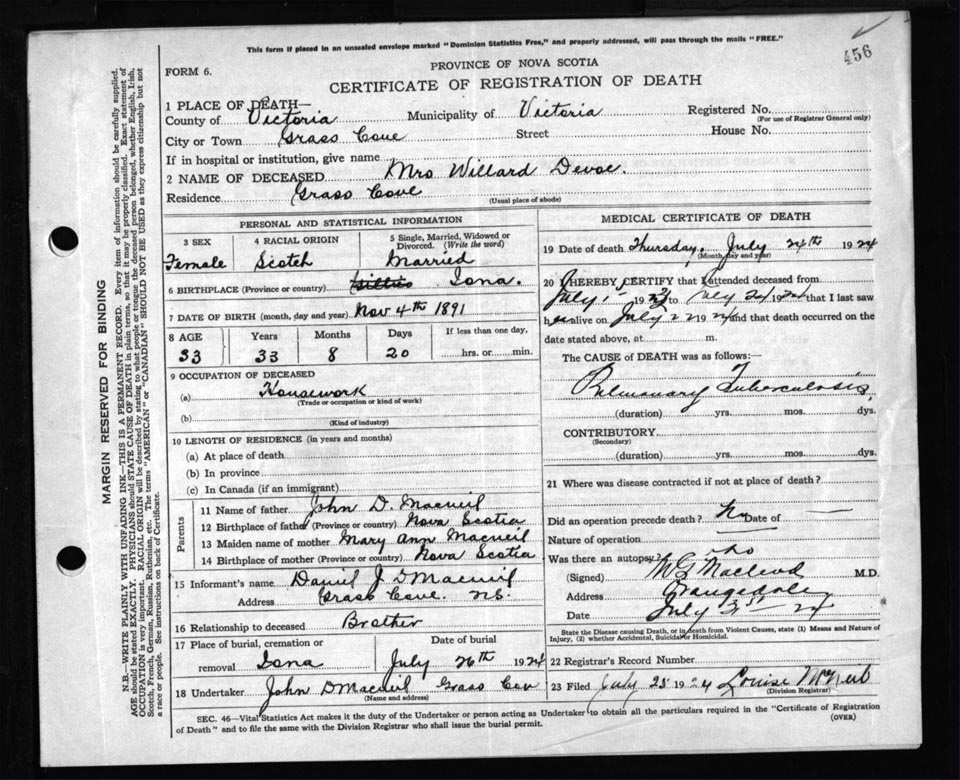 This form if placed in an unsealed envelope marked "Dominion Statistics Free," and properly addressed, will pass through the mails "FREE."
456
FORM 6.
PROVINCE OF NOVA SCOTIA
CERTIFICATE OF REGISTRATION OF DEATH
1 PLACE OF DEATH—
County of Victoria Municipality of Victoria Registered No.
(For use of Registrar General only)
City or Town Grass Cove Street House No.
If in hospital or institution, give name
2 NAME OF DECEASED Mrs Willard Devoe.
Residence Grass Cove
(Usual place of abode)
PERSONAL AND STATISTICAL INFORMATION
3 SEX 4 RACIAL ORIGIN 5 Single, Married, Widowed or Divorced. (Write the word)
Female Scotch Married
6 BIRTHPLACE (Province or country) Iona.
7 DATE OF BIRTH (month, day and year) Nov 4th 1891
8 AGE Years Months Days If less than one day,
33 33 8 20 hrs. or min.
9 OCCUPATION OF DECEASED
(a) Housework
(Trade or occupation or kind of work)
(b)
(Kind of industry)
10 LENGTH OF RESIDENCE (in years and months)
(a) At place of death
(b) In province
(c) In Canada (if an immigrant)
Parents
11 Name of father John D. Macneil
12 Birthplace of father (Province or country) Nova Scotia
13 Maiden name of mother Mary Ann Macneil
14 Birthplace of mother (Province or country) Nova Scotia
15 Informant's name Daniel J D Macneil
Address Grass Cove. N.S.
16 Relationship to deceased Brother
17 Place of burial, cremation or removal Iona
Date of burial July 26th 1924
18 Undertaker John D Macneil Grass Cov
(Name and address)
MEDICAL CERTIFICATE OF DEATH
19 Date of death Thursday, July 24th 1924
(Month, day and year)
20 I HEREBY CERTIFY that I attended deceased from
July 1 192 to July 24 1924 that I last saw
her alive on July 22 1924 and that death occurred on the
date stated above, at m.
The CAUSE of DEATH was as follows:—
Pulmonary Tuberculosis,
(duration) yrs. mos. dys.
CONTRIBUTORY
(Secondary)
(duration) yrs. mos. dys.
21 Where was disease contracted if not at place of death?
Did an operation precede death? No Date of —
Nature of operation —
Was there an autopsy? no
(Signed) Macleod M.D.
Address Orangedale
Date July 24
State the Disease causing Death, or in death from Violent Causes, state (1) Means and Nature of
Injury, (2) whether Accidental, Suicidal or Homicidal.
22 Registrar's Record Number
23 Filed July 25 1924 Louise McNeil
(Division Registrar)
SEC. 46—Vital Statistics Act makes it the duty of the Undertaker or person acting as Undertaker to obtain all the particulars required in the "Certificate of Registration
of Death" and to file the same with the Division Registrar who shall issue the burial permit.
(OVER)
MARGIN RESERVED FOR BINDING
N.B.—WRITE PLAINLY WITH UNFADING INK—THIS IS A PERMANENT RECORD. Every item of information should be carefully supplied.
AGE should be stated EXACTLY. PHYSICIANS should STATE CAUSE OF DEATH in plain terms, so that it may be properly classified. Exact statement of
OCCUPATION is very important. RACIAL ORIGIN will be described by stating to what people or tongue the deceased person belonged, whether English, Irish,
Scotch, French, German, Russian, Ruthenian, etc. The terms "AMERICAN" or "CANADIAN" SHOULD NOT BE USED as they express citizenship but not
a race or people. See instructions on back of Certificate.